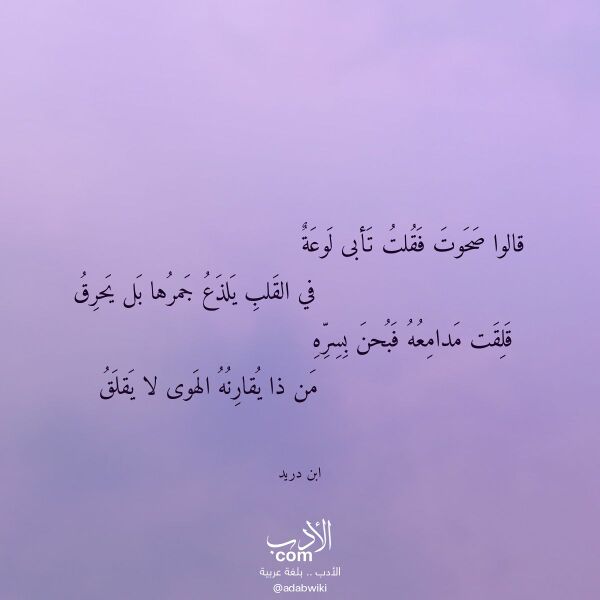 قالوا صَحَوتَ فَقُلتُ تَأبى لَوعَةٌ
في القَلبِ يَلذَعُ جَمرُها بَل يَحرِقُ
قَلِقَت مَدامِعُهُ فَبُحنَ بِسِرِّهِ
مَن ذا يُقارِنُهُ الهَوى لا يَقلَقُ
ابن دريد
الأدب
com
الأدب .. بلغة عربية
@adabwiki